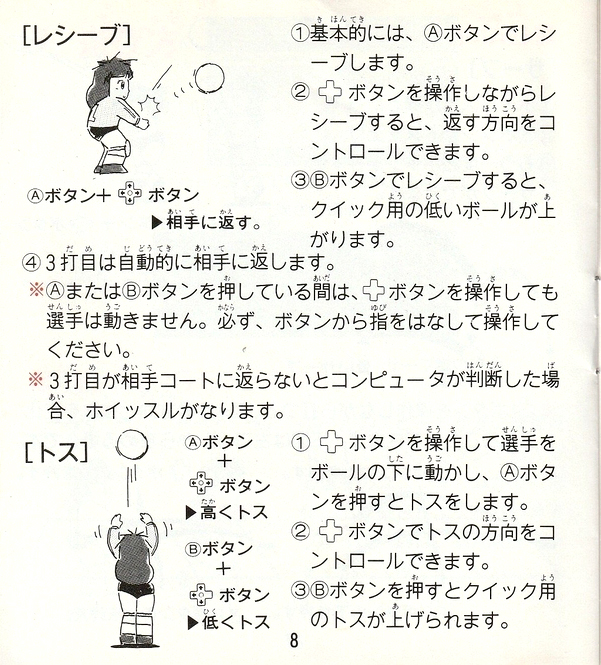 [レシーブ]
Ⓐボタン＋ ボタン
▶相手に返す。
①基本的には、Ⓐボタンでレシ
ーブします。
② ボタンを操作しながらレ
シーブすると、返す方向をコ
ントロールできます。
③Ⓑボタンでレシーブすると、
クイック用の低いボールが上
がります。
④3打目は自動的に相手に返します。
※ⒶまたはⒷボタンを押している間は、ボタンを操作しても
選手は動きません。必ず、ボタンから指をはなして操作して
ください。
※3打目が相手コートに返らないとコンピュータが判断した場
合、ホイッスルがなります。
[トス]
Ⓐボタン
＋
ボタン
▶高くトス
Ⓑボタン
＋
ボタン
▶低くトス
① ボタンを操作して選手を
ボールの下に動かし、Ⓐボタ
ンを押すとトスをします。
② ボタンでトスの方向をコ
ントロールできます。
③Ⓑボタンを押すとクイック用
のトスが上げられます。
8